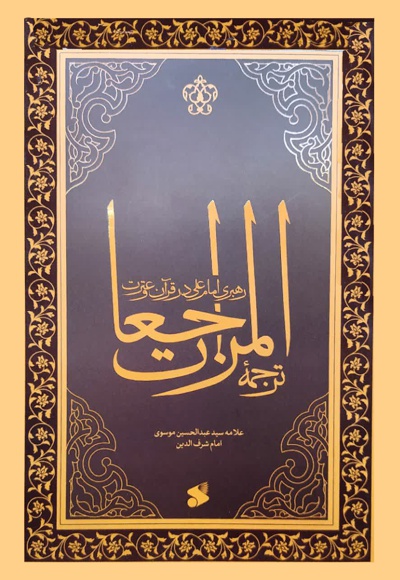 رهبری امام علی در قرآن و عترت
المراجعات
ترجمهٔ
علامه سید عبدالحسین موسوی
امام شرف الدین